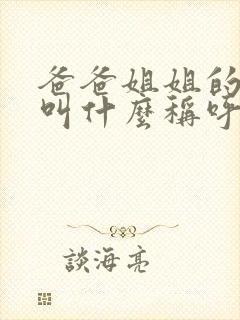 爸爸姐姐的
叫什麼稱呼
談海亮